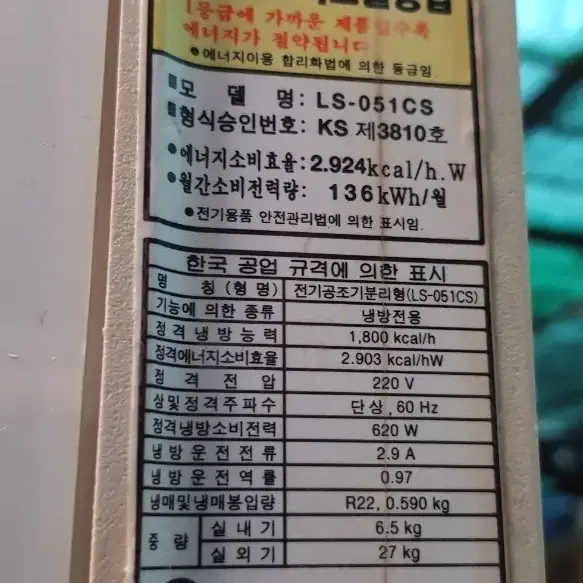 1등급에 가까운 제품일수록
에너지가 절약됩니다
● 에너지이용 합리화법에 의한 등급임.
■모 델 명: LS-051CS
■형식승인번호: KS 제3810호
●에너지소비효율: 2.924kcal/h.W
●월간소비전력량: 136kWh/월
●전기용품 안전관리법에 의한 표시임.
한국 공업 규격에 의한 표시
명 칭 (형 명) 전기공조기분리형(LS-051CS)
기능에 의한 종류 냉방전용
정격냉방능력 1,800 kcal/h
정격에너지소비효율 2.903 kcal/hW
정 격 전 압 220 V
상및정격주파수 단상, 60 Hz
정격냉방소비전력 620 W
냉방운전전류 2.9 A
냉방운전역률 0.97
냉매및냉매봉입량 R22, 0.590 kg
중 량 실 내 기 6.5 kg
실 외 기 27 kg